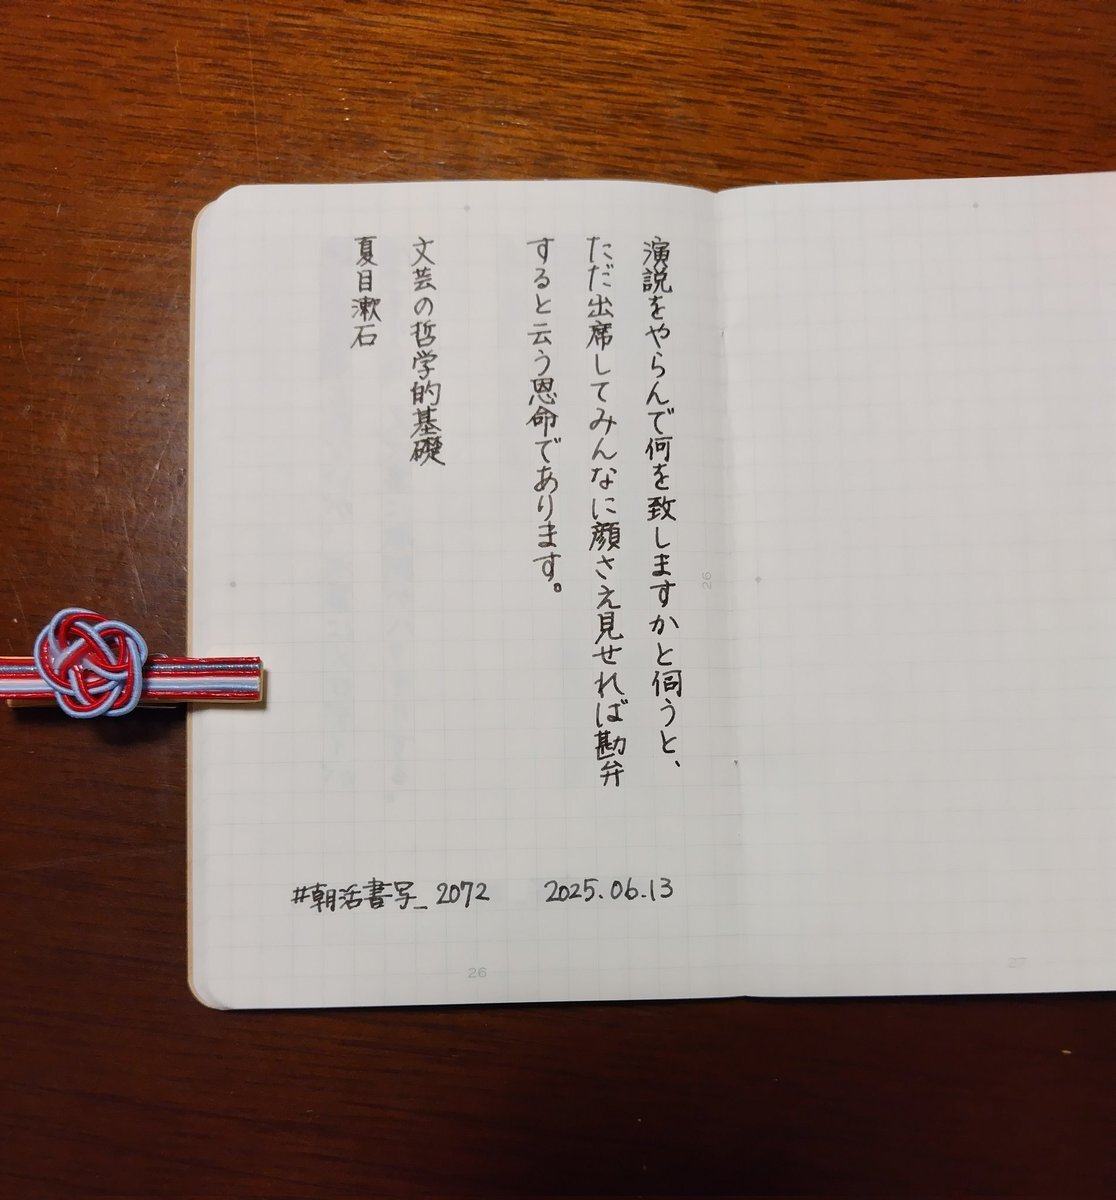 演説をやらんで何を致しますかと伺うと、
ただ出席してみんなに顔さえ見せれば勘弁
すると云う恩命であります。
文芸の哲学的基礎
夏目漱石
#朝活書写_2072 2025.06.13
26
26
27